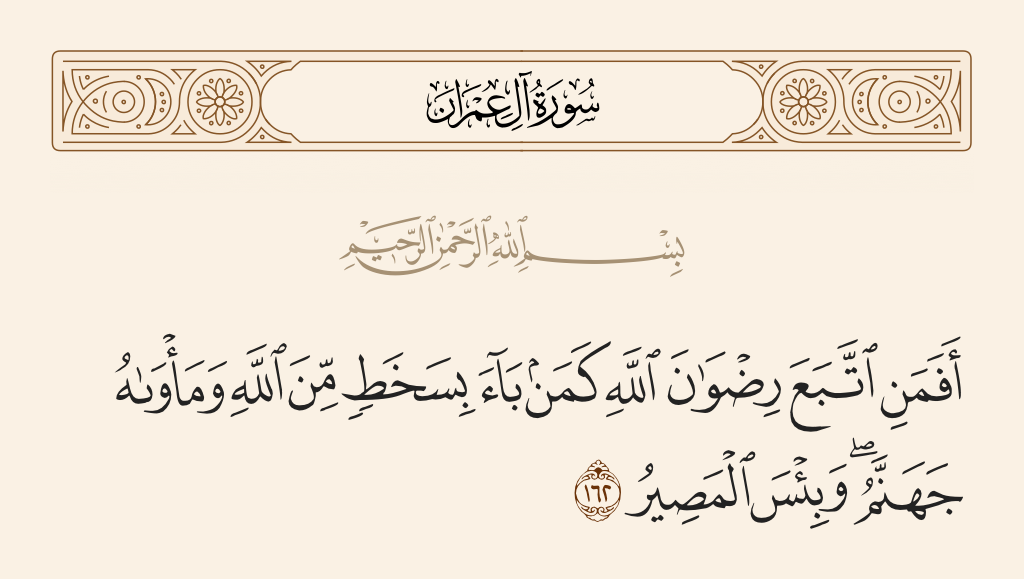 سُورَةُ آلِ عِمْرَان
بِسْمِ ٱللَّهِ ٱلرَّحْمَٰنِ ٱلرَّحِيمِ
أَفَمَنِ ٱتَّبَعَ رِضْوَٰنَ ٱللَّهِ كَمَنۢ بَآءَ بِسَخَطٍ مِّنَ ٱللَّهِ وَمَأْوَىٰهُ
جَهَنَّمُ ۖ وَبِئْسَ ٱلْمَصِيرُ ١٦٢